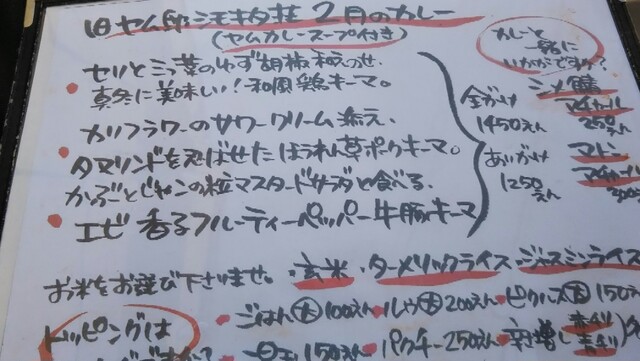 旧ヤム邸シモキタ荘 2月のカレー
(ヤムカレースープ付き)
セリと三つ葉のゆず胡椒和えのせ、
真冬に美味しい!和風鶏キーマ。
カリフラワーのサワークリーム添え、
タマリンドを忍ばせたほうれん草ポークキーマ。
かぶとじゃこの粒マスタードサラダと食べる、
エビ香るフルーティーペッパー牛豚キーマ
全がけ
1450えん
あいがけ
1250えん
カレーと
一緒に
いかがですか?
シメ鯖
アチャール
250えん
マトン
アチャール
お米をお選び下さいませ。・玄米・ターメリックライス・ジャスミンライス
トッピングは
・ごはん大100えん・ルウ大200えん・ピクルス大150
150えん・パクチー250えん・辛さ増し